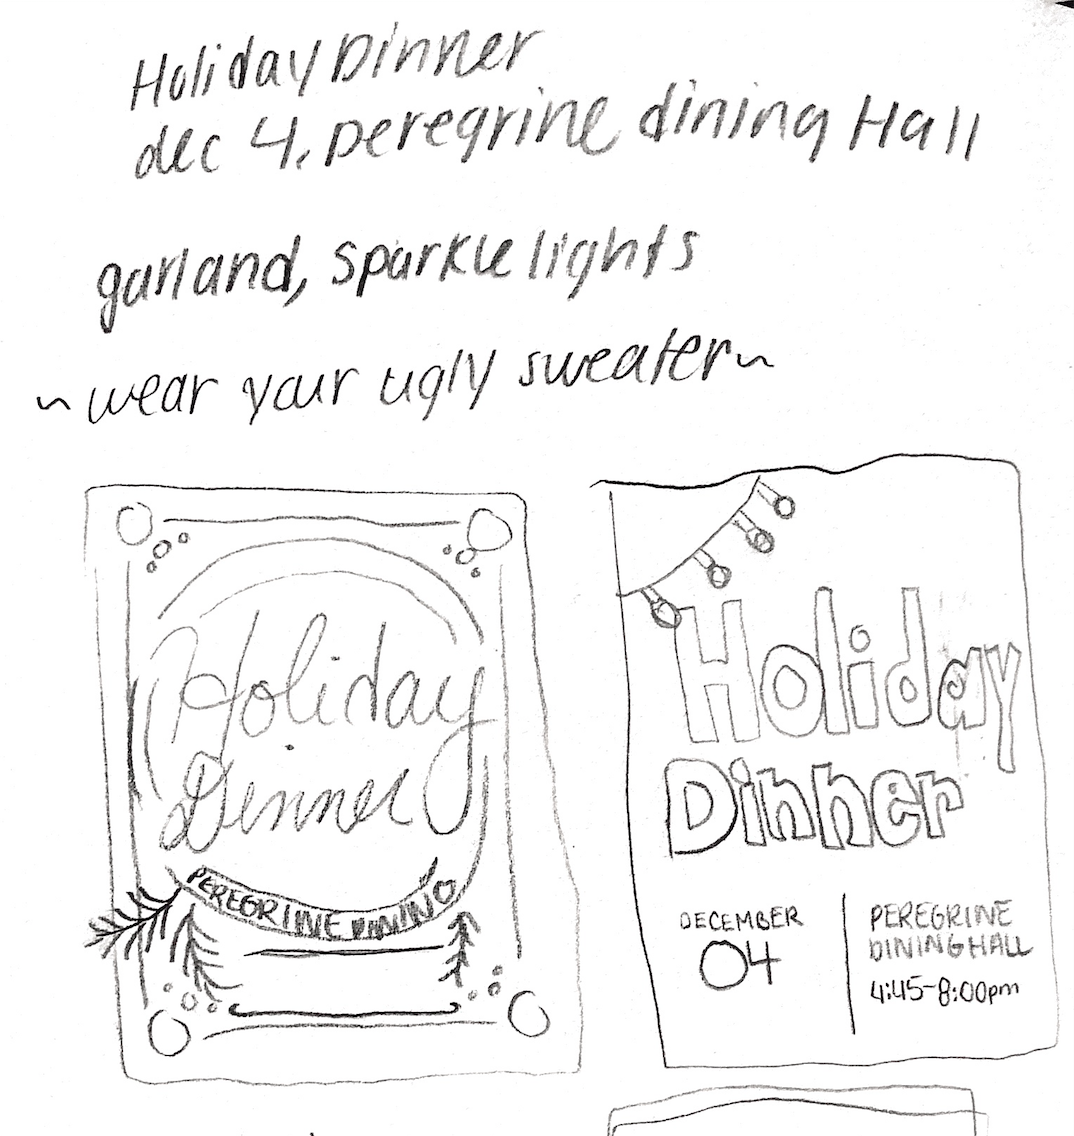 Holiday Dinner
dec 4. peregrine dining Hall
garland, sparkle lights
~wear your ugly sweater~
Holiday
Dinner
PEREGRINE DINING
Holiday
Dinner
DECEMBER
04
PEREGRINE
DINING HALL
4:45-8:00pm